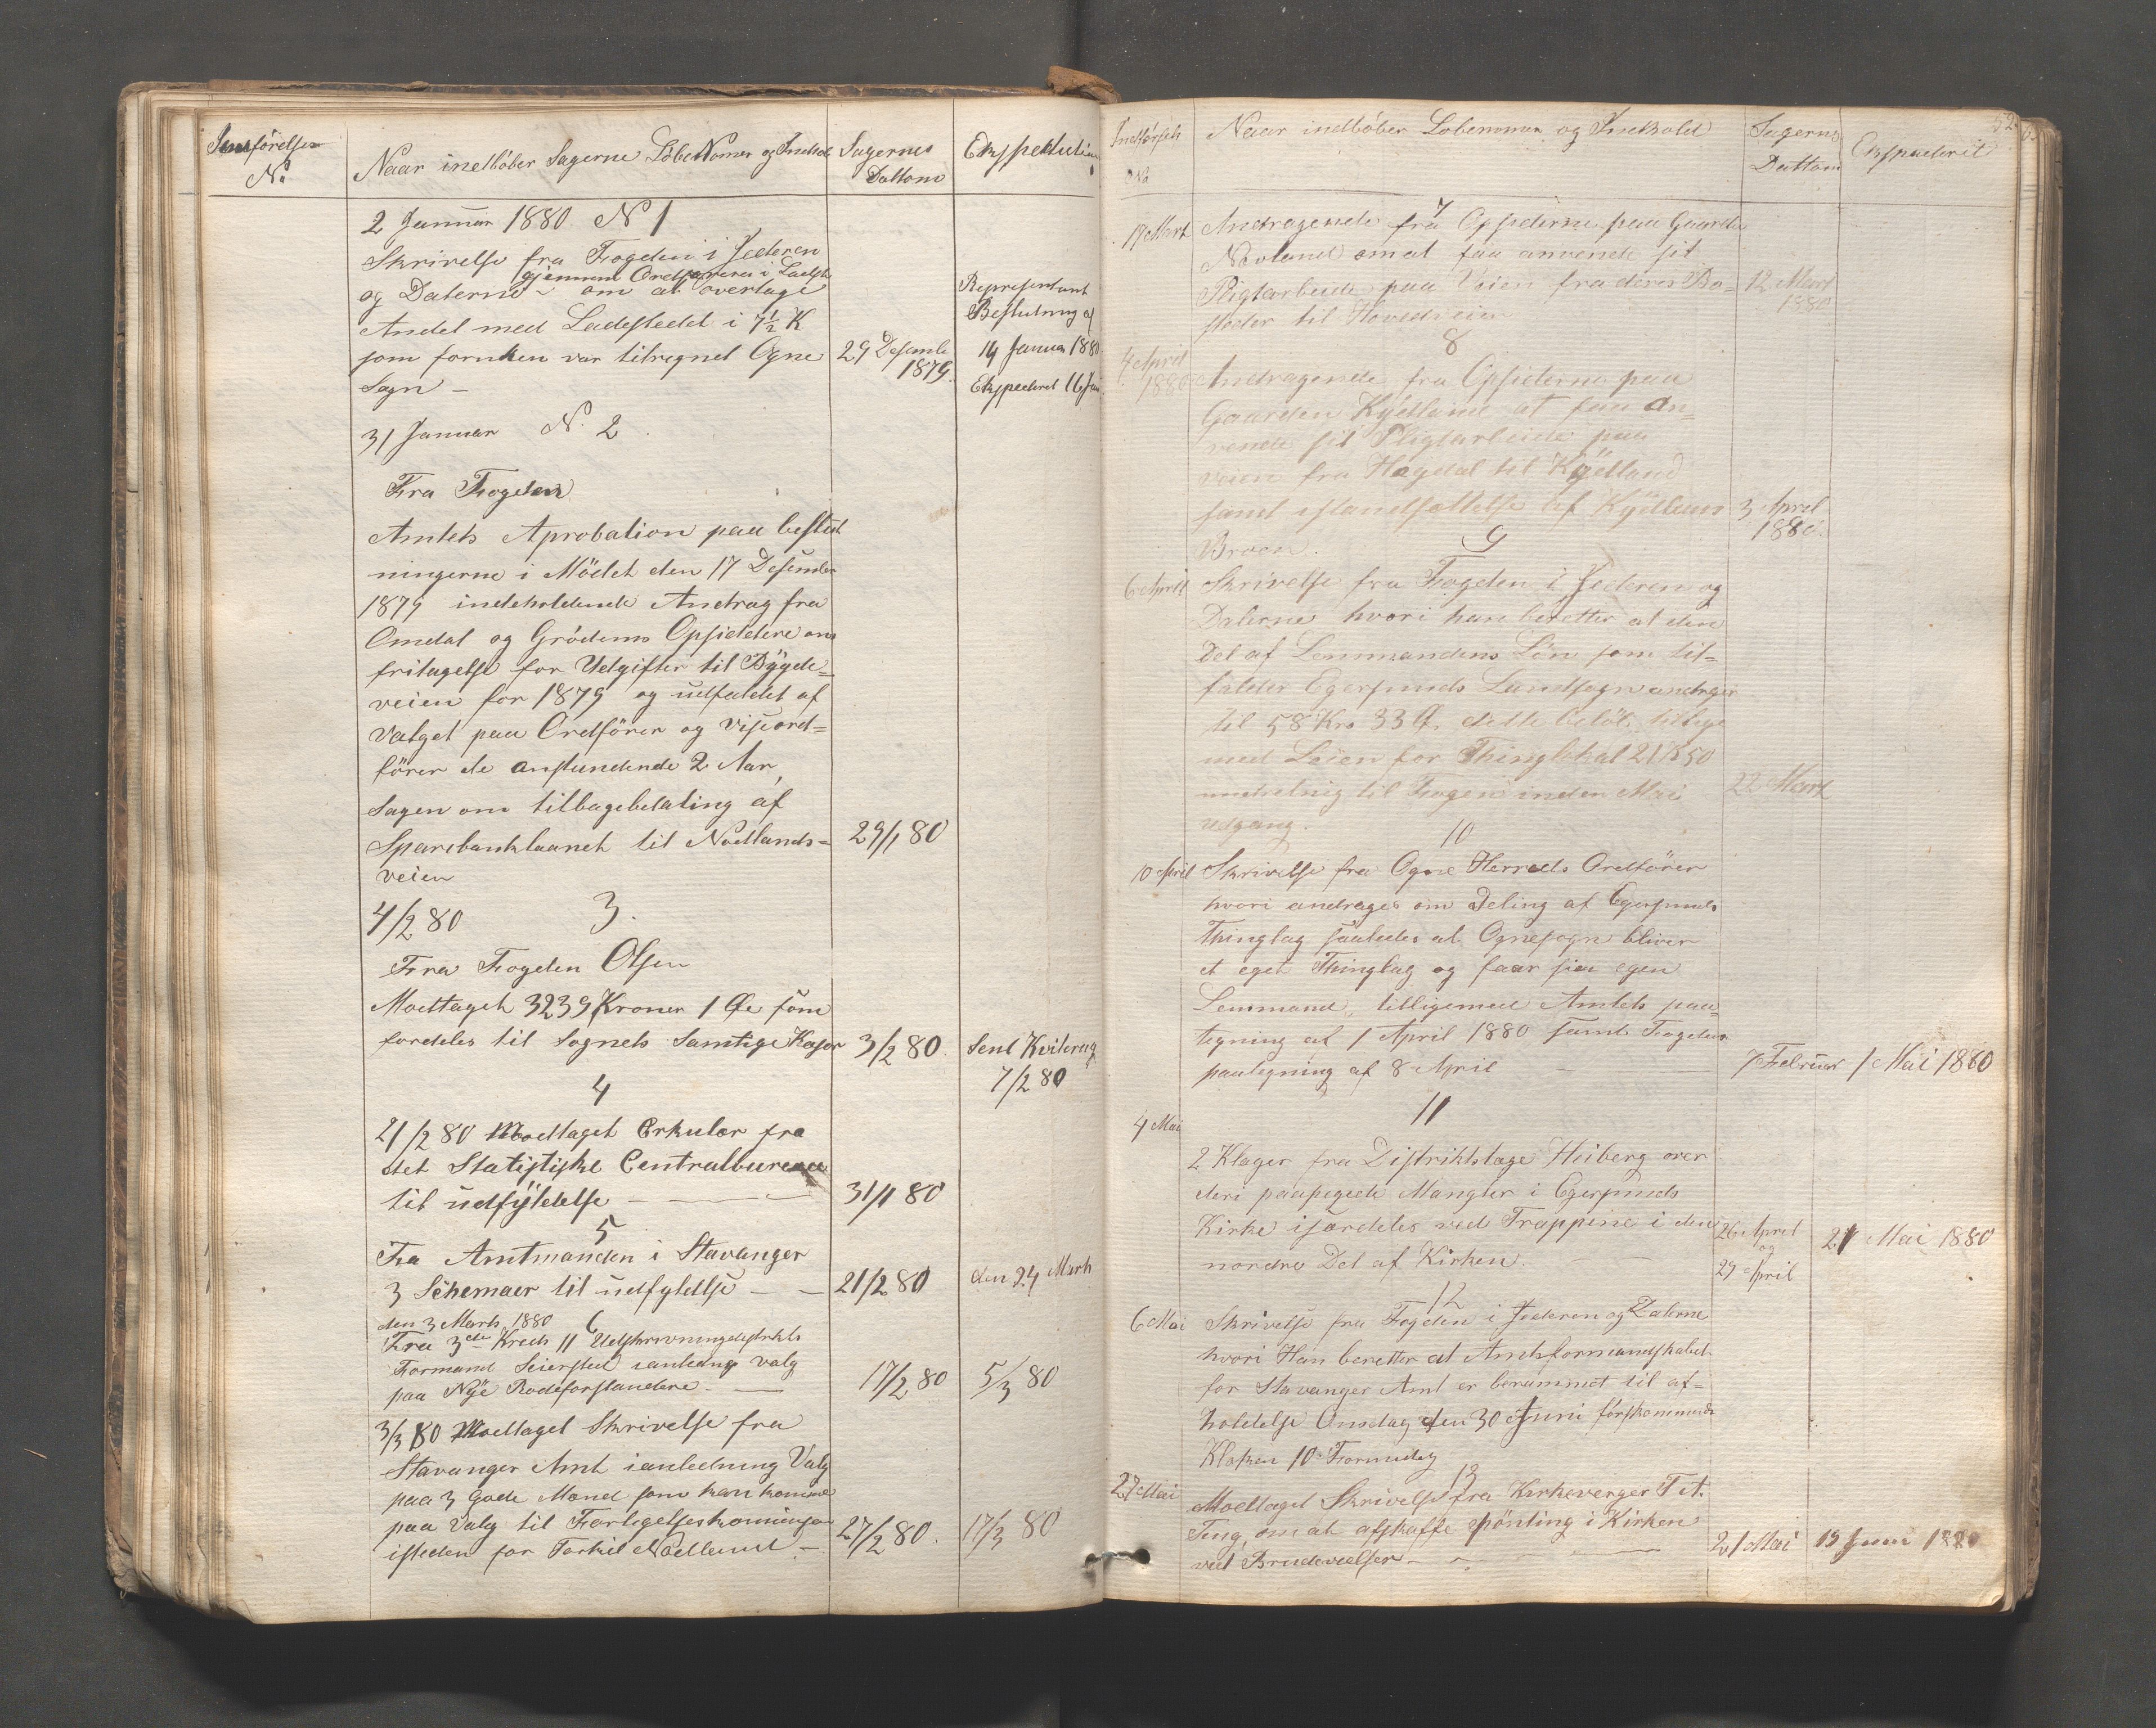 N.
Naar indløber Sagerne Løbe Nomer og Indhol
Sagernes
Dattom
2 Januar 1880 N 1
Skrivelse fra Fogden i Jederen
gjennem Ordføreren i Ladst
og Dalerne om at overtage
Andel med Ladestedet i 7½ K
som foruden var tilregnet Ogne
Sogn –
29 Desembr
1879.
Representant
Beslutning af
14 Januar 1880
Ekspederet 16 Jan
31 Januar N. 2.
Fra Fogden
Amtets Aprobation paa beslut
ningerne i Mödet den 17 Desember
1879 indeholdende Andrag fra
Omdal og Grödems Opsiddere om
fritagelse for Udgifter til Bygde=
veien for 1879 og udfaldet af
Valget paa Ordförer og viseord=
förer de anstundende 2 Aar,
Sagen om tilbagebetaling af
Sparebanklaanet til Nodlands=
veien
29/1 80
4/2 80 3.
Fra Fogden Olsen
Modtaget 3239 Kroner 1 Øre som
fordeles til Sognets Samtige Kasser
3/2 80.
Sent Kvitering
7/2 80
4
21/2 80 Modtaget Cirkulær fra
det Statistiske Centralbureau
til udfÿldelse –
31/1 80
5
Fra Amtmanden i Stavanger
3 Schemaer til udfyldelse – –
21/2 80
den 24 Marts
den 3 Marts 1880 6
Fra 3die Kreds 11 Udskrivningdistrikts
Formand Seiersted ianledning valg
paa Nÿe Rodeforstandere –
17/2 80
5/3 80
3/3 80 Modtaget Skrivelse fra
Stavanger Amt ianledning Valg
paa 3 Gode Mænd som kan komme
paa Valg til Forligelseskomision
isteden for Torkel Nodland –
27/2 80.
17/3 80
52
No
Naar indløber Lobenomer og Indhold
Sagernes
Dattom
Ekspederet
7
17 Mart
Andragende fra Opsiderne paa Gaarden
om at faa anvende sit
Pligtarbeide paa Veien fra deres Bo=
steder til Hovedveien
12 Mart
1880
8
4 April
1880
Andragende fra Opsiderne paa
Gaarden Kÿdland at faa an=
vende sit Pligtarbeide paa
veien fra Hegdal til Kÿdland
samt istandsættelse af Kÿdlands
Broen.
3 April
1880.
9
6 April
Skrivelse fra Fogden i Jederen og
Dalerne hvori han beretter at den
Del af Lensmandens Lön som til=
falder Egersunds Landsogn andrager
til 58 Kro 33 Ø. dette belöb tillige
med Leien for Thinglokal 21 K 50
til Fogen inden Mai
udgang.
22 Mart
10
10 April
Skrivelse fra Ogne Herreds Ordförer
hvori andrages om Deling af Egersunds
Thinglag saaledes at Ognesogn bliver
et eget Thinglag og faar sin egen
Lensmand, tilligemed Amtets paa=
tegning af 1 April 1880 samt Fogdens
paategning af 8 April –
7 Februar
1 Mai 1880
11
4 Mai
2 Klager fra Distriktslæge Heiberg over
deri paapegede Mangler i Egersunds
Kirke isærdeles ved Trappene i den
nordre Del af Kirken. –
26 April
og
29 April
21 Mai 1880
12
6 Mai
Skrivelse fra Fogden i Jederen og Dalerne
hvori Han beretter at Amtsformandskabet
for Stavanger Amt er berammet til af=
holdelse Onsdag den 30 Juni førstkommende
Kloken 10 Formidag
13
27 Mai
Modtaget Skrivelse fra Kirkeverger Tit.
Teng, om at afskaffe pönting i Kirken
ved Brudevielser –
21 Mai
15 Juni 1880